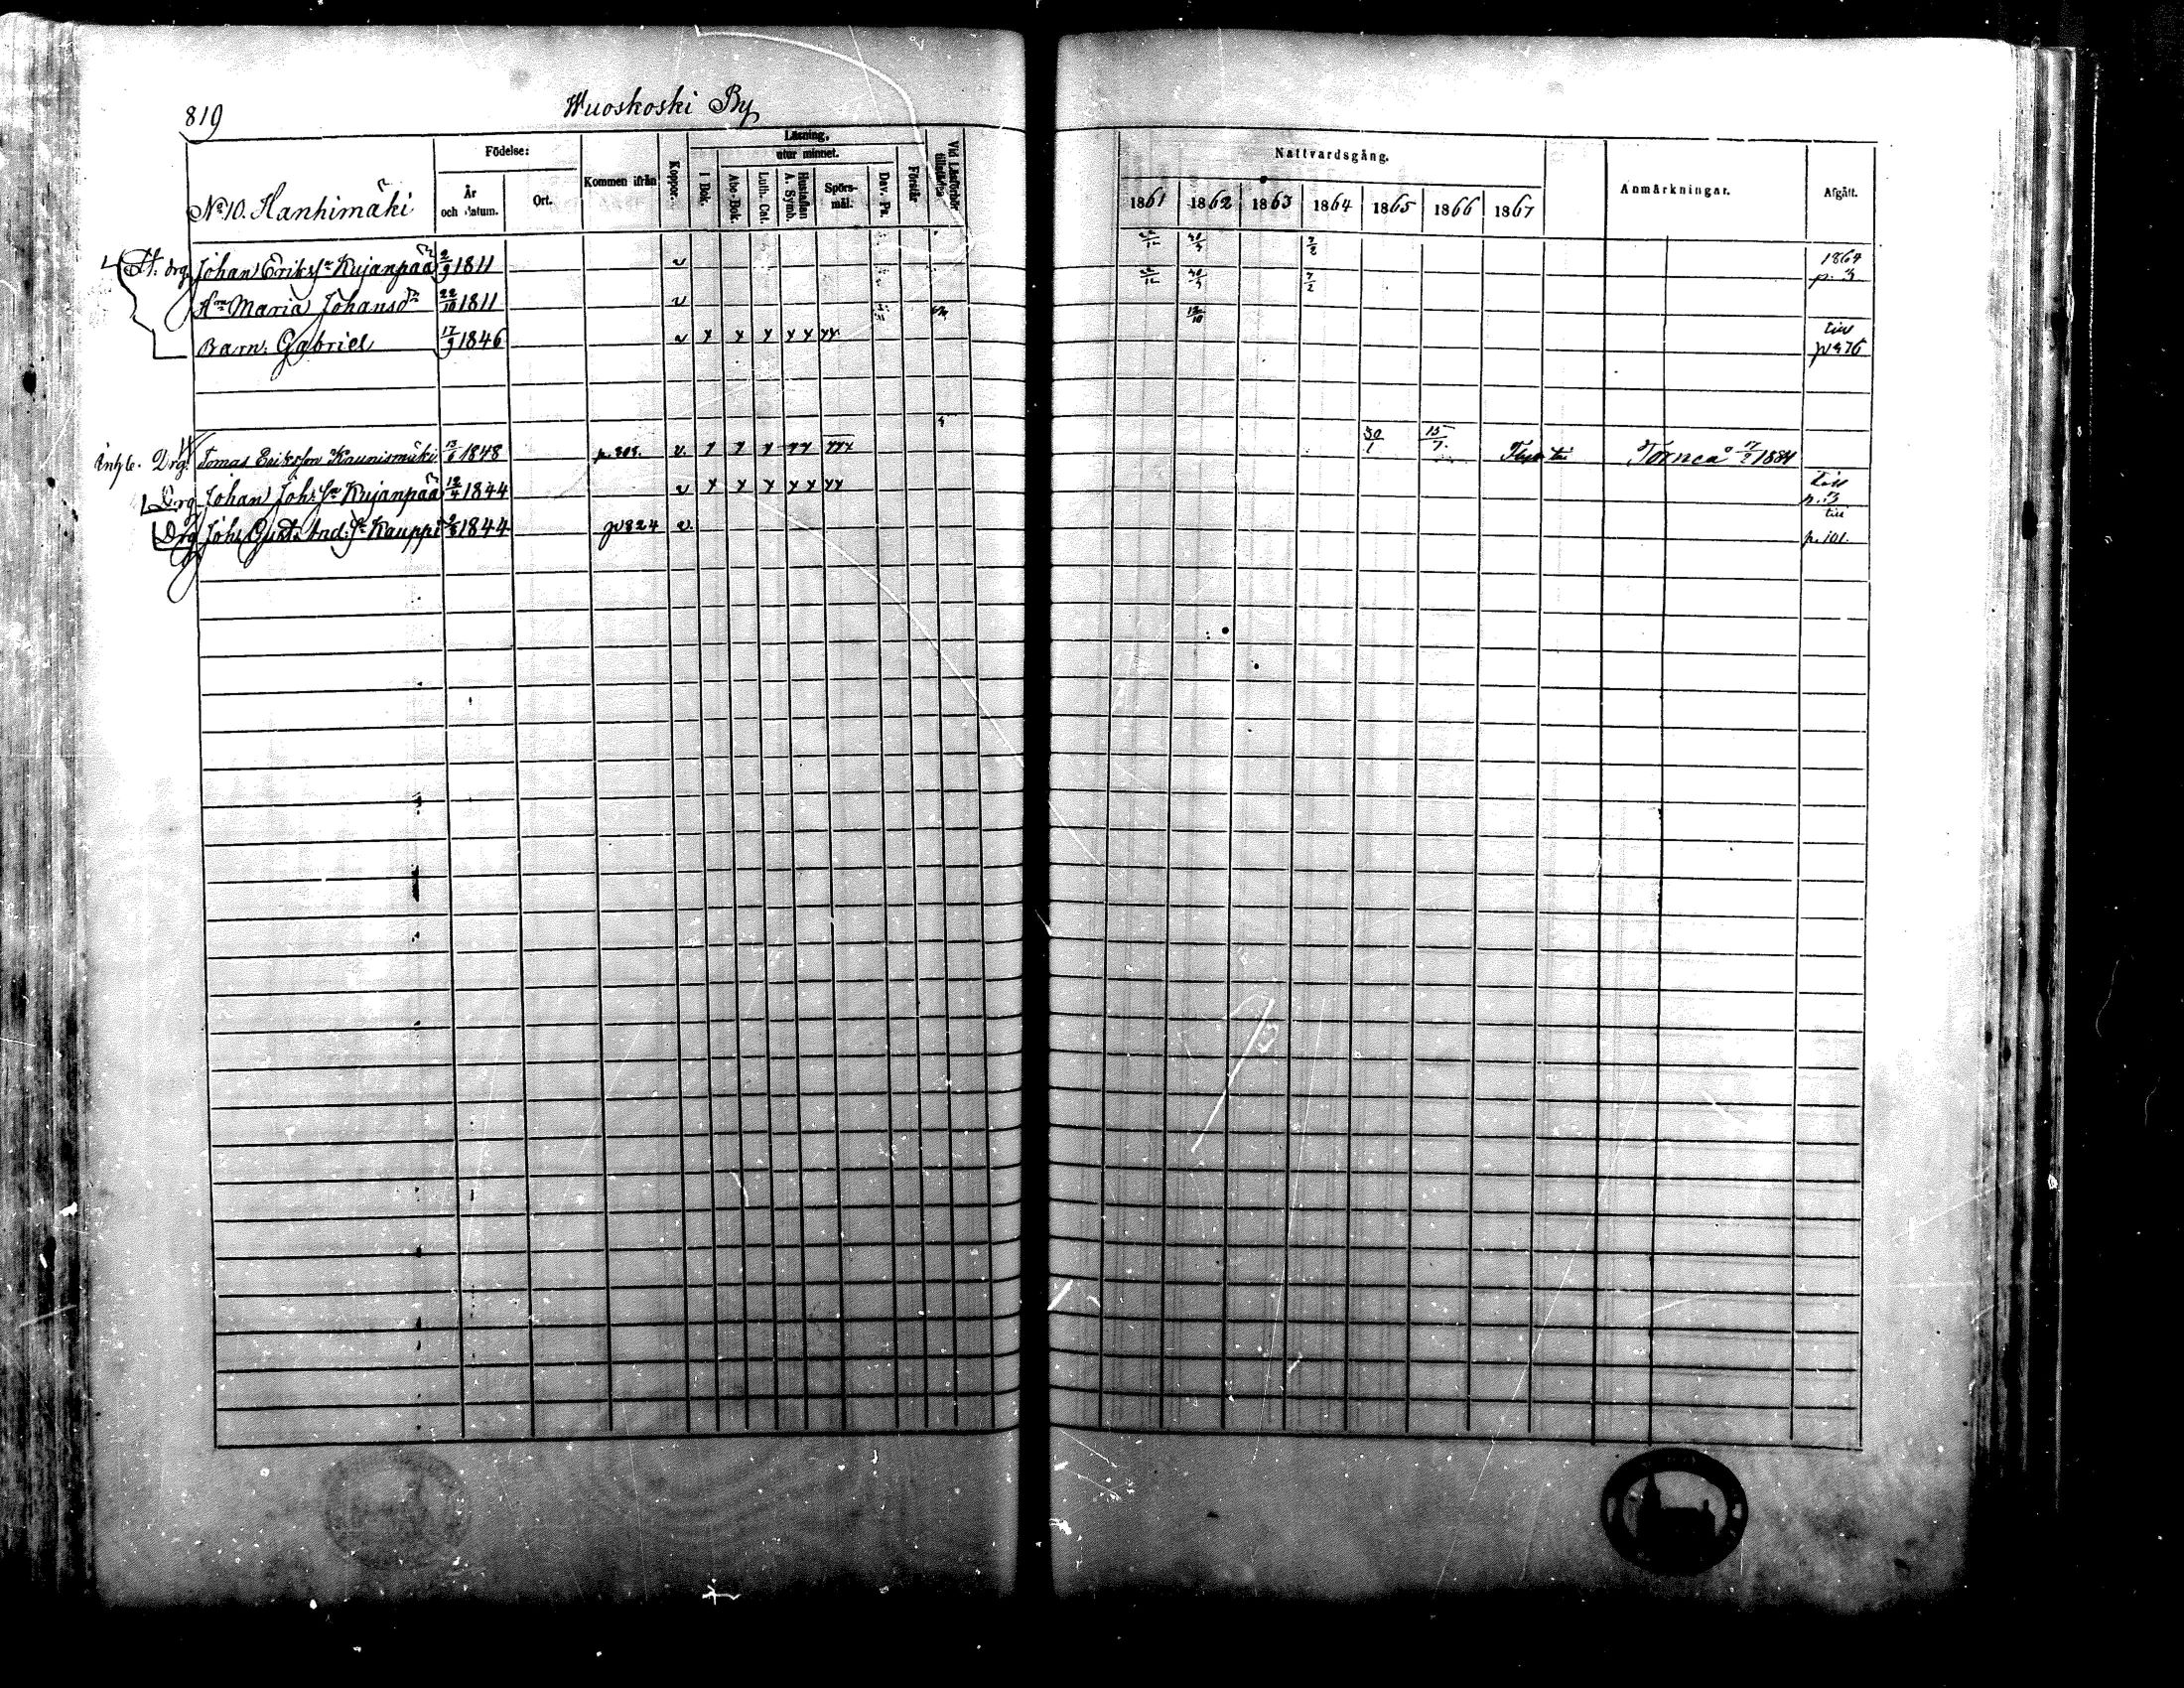 819
Wuoskoski By
No 10. Hanhimäki
Födelse:
År och datum.
Ort.
Kommen ifrån
Koppor.
Läsning,
I Bok.
utur minnet.
Abc-Bok.
Luth. Cat.
Hustaflan A. Symb.
Spörs-mål.
Dav. Ps.
Förstår
Vid Läsförhör tillstädes
Nattvardsgång.
1861 1862 1863 1864 1865 1866 1867
Anmärkningar.
Afgått.
Johan Erikss. Kujanpää 2/9 1811 v 7/2 1864 p. 3
Hu Maria Johansdr 22/10 1811 v 7/2
Barn: Gabriel 17/9 1846 v x x x x x xx 12/10 till
Inhs. Drg. Tomas Eriksson Kaunismäki 13/6 1848 p. 808. v. x x x xx xxx 30/1 15/7 Torneå 1884
Drg Johan Joh:s Kujanpää 12/4 1844 v x x x x x xx till p. 3
Drg Joh. Gust. And:s Kauppi 1844 p 824 v. till p. 101.